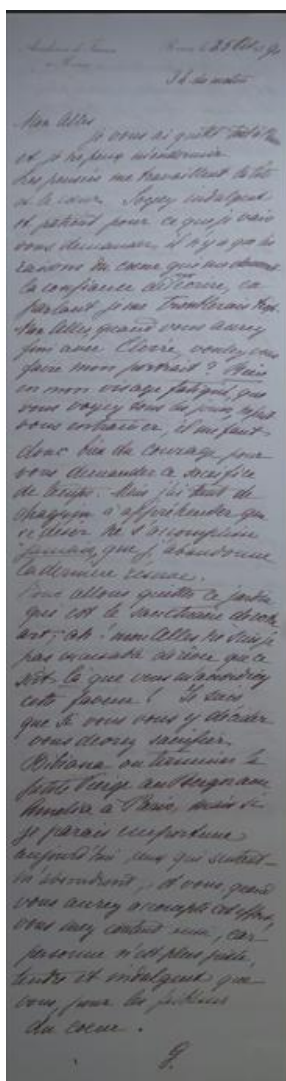 Académie de France Rome le 25
à Rome
3h du matin
Mon Celles
je vous ai quitté tout à l'heure
et je ne peux m'endormir.
Les pensées me travaillent la tête
et le cœur. Soyez indulgent
et patient pour ce que je vais
vous demander, il n'y a que les
raisons du cœur qui me donnent
la confiance d'écrire, en
parlant je me troublerais trop.
Mon Celles quand vous aurez
fini avec Claire, voulez vous
faire mon portrait ? Mais
mon visage fatigué, que
vous voyez tous les jours,
vous entrainer, il me faut
donc bien du courage pour
vous demander ce sacrifice
de temps. Mais j'ai tant de
chagrin à appréhender que
ce désir ne s'accomplisse
jamais, que j'abandonne
la dernière réserve.
Vous allez quitter ce jardin
qui est le sanctuaire de votre
art, ah ! mon Celles ne suis je
pas maladroite de rêver que ce
soit là que vous m'accordiez
cette faveur ! Je sais
que si vous vous y décidez
vous devrez sacrifier
Bibiana ou terminer la
petite Vierge au
à Paris, mais si
je parais importune
aujourd'hui, ceux qui
et vous, quand
vous aurez accompli cet effort,
vous serez content, car
personne n'est plus juste,
tendre et indulgent que
vous, pour les
du cœur.
G.